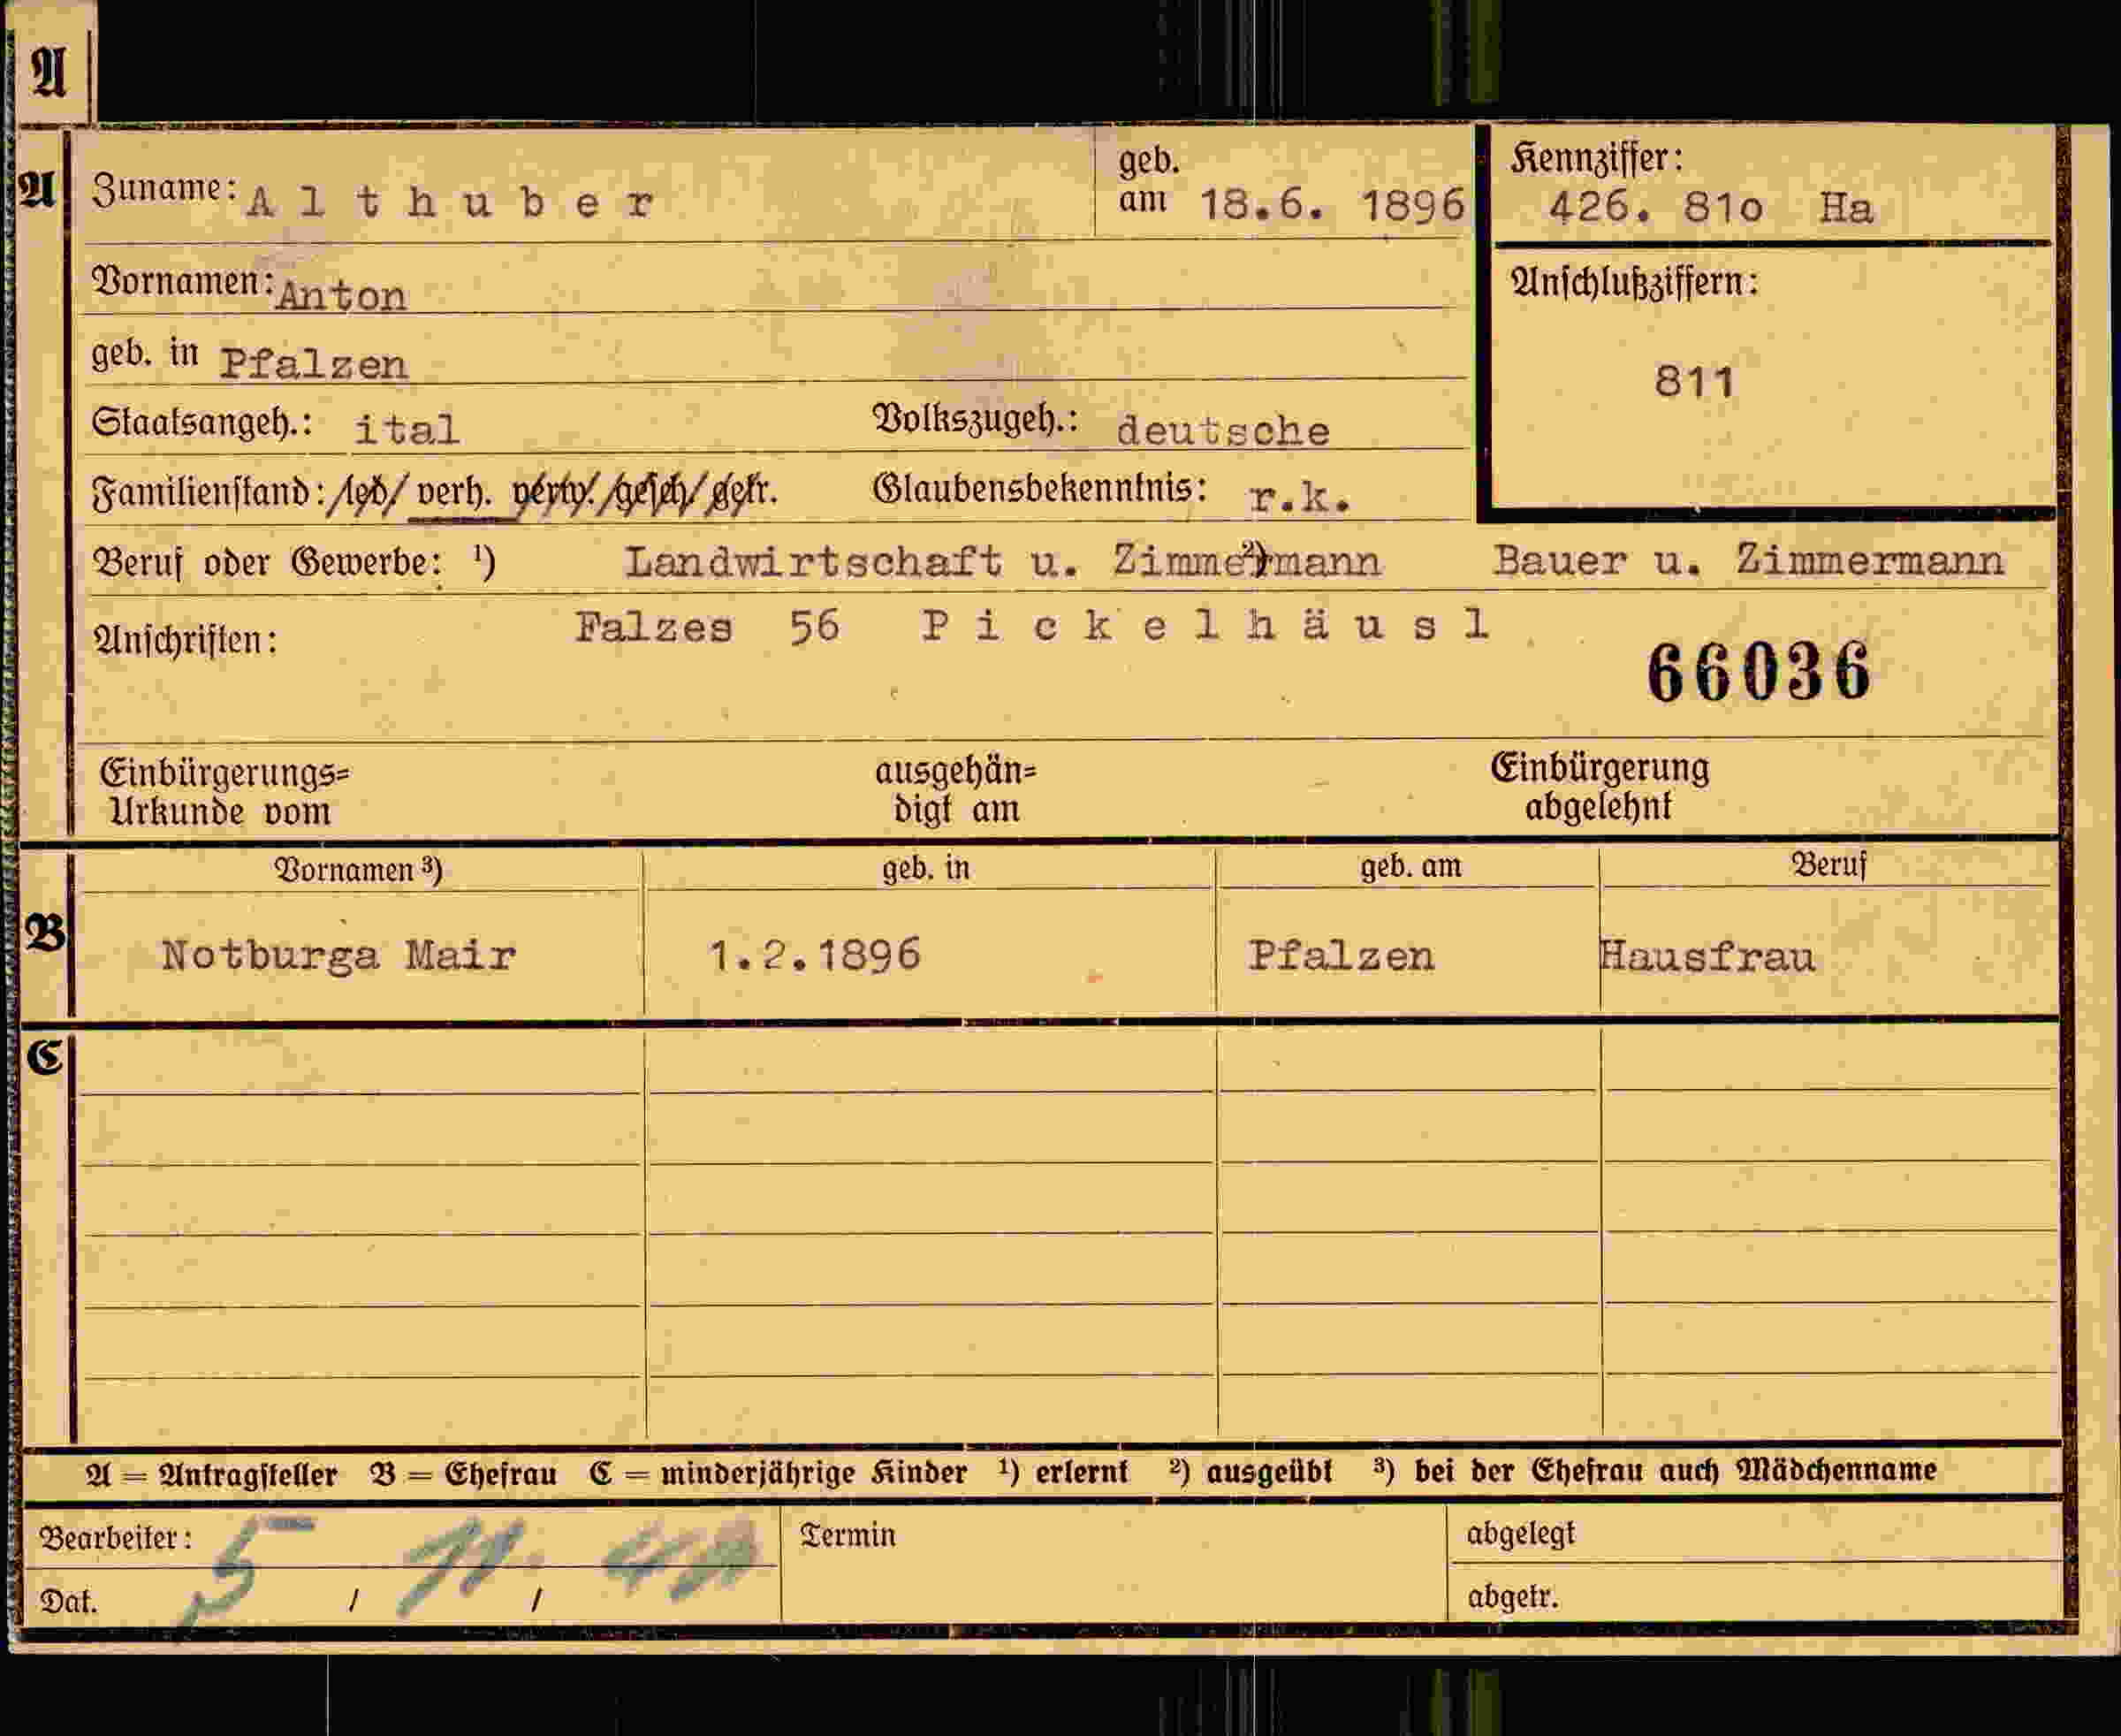 A
A
Zuname: Althuber geb. am 18.6. 1896 Kennziffer: 426. 81o Ha
Vornamen: Anton Anschlußziffern:
geb. in Pfalzen 811
Staatsangeh.: ital Volkszugeh.: deutsche
Familienstand: led/ verh. verw./gesch/getr. Glaubensbekenntnis: r.k.
Beruf oder Gewerbe: ¹) Landwirtschaft u. Zimmermann ²) Bauer u. Zimmermann
Anschriften: Falzes 56 Pickelhäusl
66036
Einbürgerungs= ausgehän= Einbürgerung
Urkunde vom digt am abgelehnt
Vornamen ³) geb. in geb. am Beruf
B
Notburga Mair 1.2.1896 Pfalzen Hausfrau
C
A = Antragsteller B = Ehefrau C = minderjährige Kinder ¹) erlernt ²) ausgeübt ³) bei der Ehefrau auch Mädchenname
Bearbeiter: Termin abgelegt
Dat. 5 / 11. / abgetr.